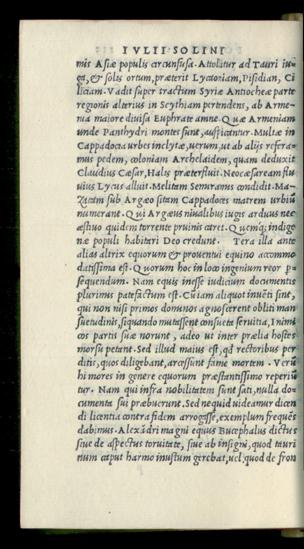 IVLII SOLINI
mis Asiæ populis circunfusa. Attollitur ad Tauri iu-
ga, & solis ortum, præterit Lycaoniam, Pisidian, Ci
liciam. Vadit super tractum Syriæ Antiocheæ parte
regionis alterius in Scythiam pertendens, ab Arme-
nia maiore diuisa Euphrate amne. Quæ Armeniam
unde Panthydri montes sunt, auspicatur. Multæ in
Cappadocia urbes inclytæ, uerum, ut ab alijs refera-
mus pedem, coloniam Archelaidem, quam deduxit
Claudius Cæsar, Halys præterfluit. Neocæsaream flu-
uius Lycus alluit. Melitem Semiramis condidit. Ma-
Zacam sub Argæo sitam Cappadoces matrem urbiū
numerant. Qui Argæus niualibus iugis arduus nec
æstiuo quidem torrente pruinis caret. Quemq; indige
næ populi habitari Deo credunt. Terra illa ante
alias altrix equorum & prouentui equino accommo
datissima est. Quorum hoc in loco ingenium reor p
sequendum. Nam equis inesse iudicium documentis
plurimis patefactum est. Cū iam aliquot inuēti sint,
qui non nisi primos dominos agnoscerent obliti man
suetudinis, siquando mutassent consueta seruitia, Inimi
cos partis suæ norunt, adeo ut inter prælia hostes
morsu petant. Sed illud maius est, qd rectoribus per
ditis, quos diligebant, arcessunt fame mortem. Verū
hi mores in genere equorum præstantissimo reperiū
tur. Nam qui infra nobilitatem sunt sati, nulla do-
cumenta sui præbuerunt. Sed ne quid uideamur dicen
di licentia contra fidem arrogasse, exemplum frequēs
dabimus. Alexādri magni equus Bucephalus dictus
siue de aspectus toruitate, siue ab insigni, quod tauri
num caput harmo inustum gerebat, uel quod de fron